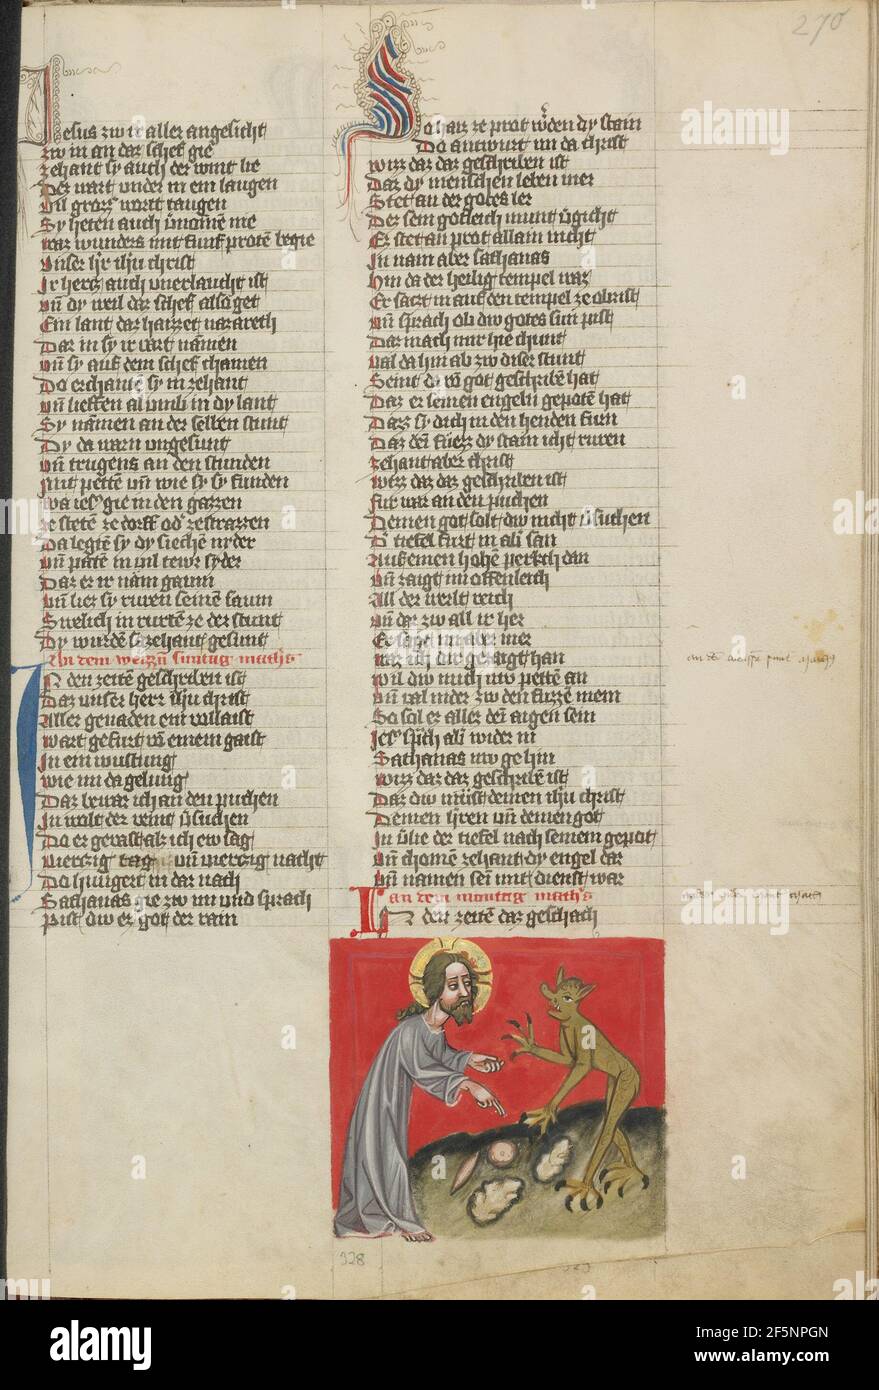 270
Jesus zw ir aller angesicht
zw in an daz schef gie
zehant sy auch der wint lie
Der wart under in ein laugen
Vil grozz wort taugen
Sy heten auch vernomen me
waz wunders mit funf proten begie
Unser her ihu christ
Ir hertz auch unerlaucht ist
Und dy weil daz schef also get
Ein lant daz haizzet nazareth
Dar in sy ir vart namen
Und sy auz dem schef chamen
Do erchanten sy in zehant
Und lieffen al umb in dy lant
Sy namen an der selben stunt
Dy da warn ungesunt
Und trugens an den stunden
Mit petten und wie sy sy funden
Wa iesus gie in den gazzen
ze steten ze dorff oder ze strazzen
Da legten sy dy siechen nyder
Und paten in vil tewr syder
Daz er ir nam gaum
Und liez sy ruren seinen saum
Swelich in rurten ze der stunt
Dy wurden zehant gesunt
In den zeiten geschriben ist
Daz unser herr ihu christ
Aller genaden ein vollaist
wart gefurt von einem gaist
In ein wustung
wie im da gelung
Daz bewar ich an den puchen
In wolt der veint versuchen
Do er gevast alz ich ew sag
viertzig tag und viertzig nacht
Do hungert in dar nach
Sathanas gie zw im und sprach
Pist dw er got der rain
So haiz ze prot werden dy stain
Do antwurt im da christ
wizz daz daz geschriben ist
Daz dy menschen leben mer
Stet an der gotes ler
Der sein gotleich munt vergicht
Er stet an prot allain nicht
In nam aber sathanas
Hin da der heilig tempel waz
Er satzt in auf den tempel ze obrist
Und sprach ob dw gotes sun pist
Daz mach mir hie chunt
Val da hin ab zw diser stunt
Seint von got geschriben hat
Daz er seinen engeln gepoten hat
Daz sy dich in den henden furn
Daz den fuezz dy stain icht ruren
zehant aber christ
wizz daz daz geschriben ist
fur war an den puchen
Deinen got solt dw nicht versuchen
Der tiefel furt in aber san
Auf einen hohen perkch dan
Und zaigt im offenleich
All der werlt reich
Und dar zw all ir her
Er sagt im aber mer
waz ich dir gezaigt han
wil dw mich nw petten an
Und val nider zw den fuzzen mein
So sol ez allez dein aigen sein
Jesus sprach aber wider in
Sathanas nw ge hin
wizz daz daz geschriben ist
Daz dw must deinen ihu christ
Deinen herren und deinen got
In verlie der tiefel nach seinem gepot
Und chomen zehant dy engel dar
Und namen sein mit dienst war
an dem montag matheus
In den zeiten daz geschach
328
alamy
Image ID: 2F5NPGN
www.alamy.com